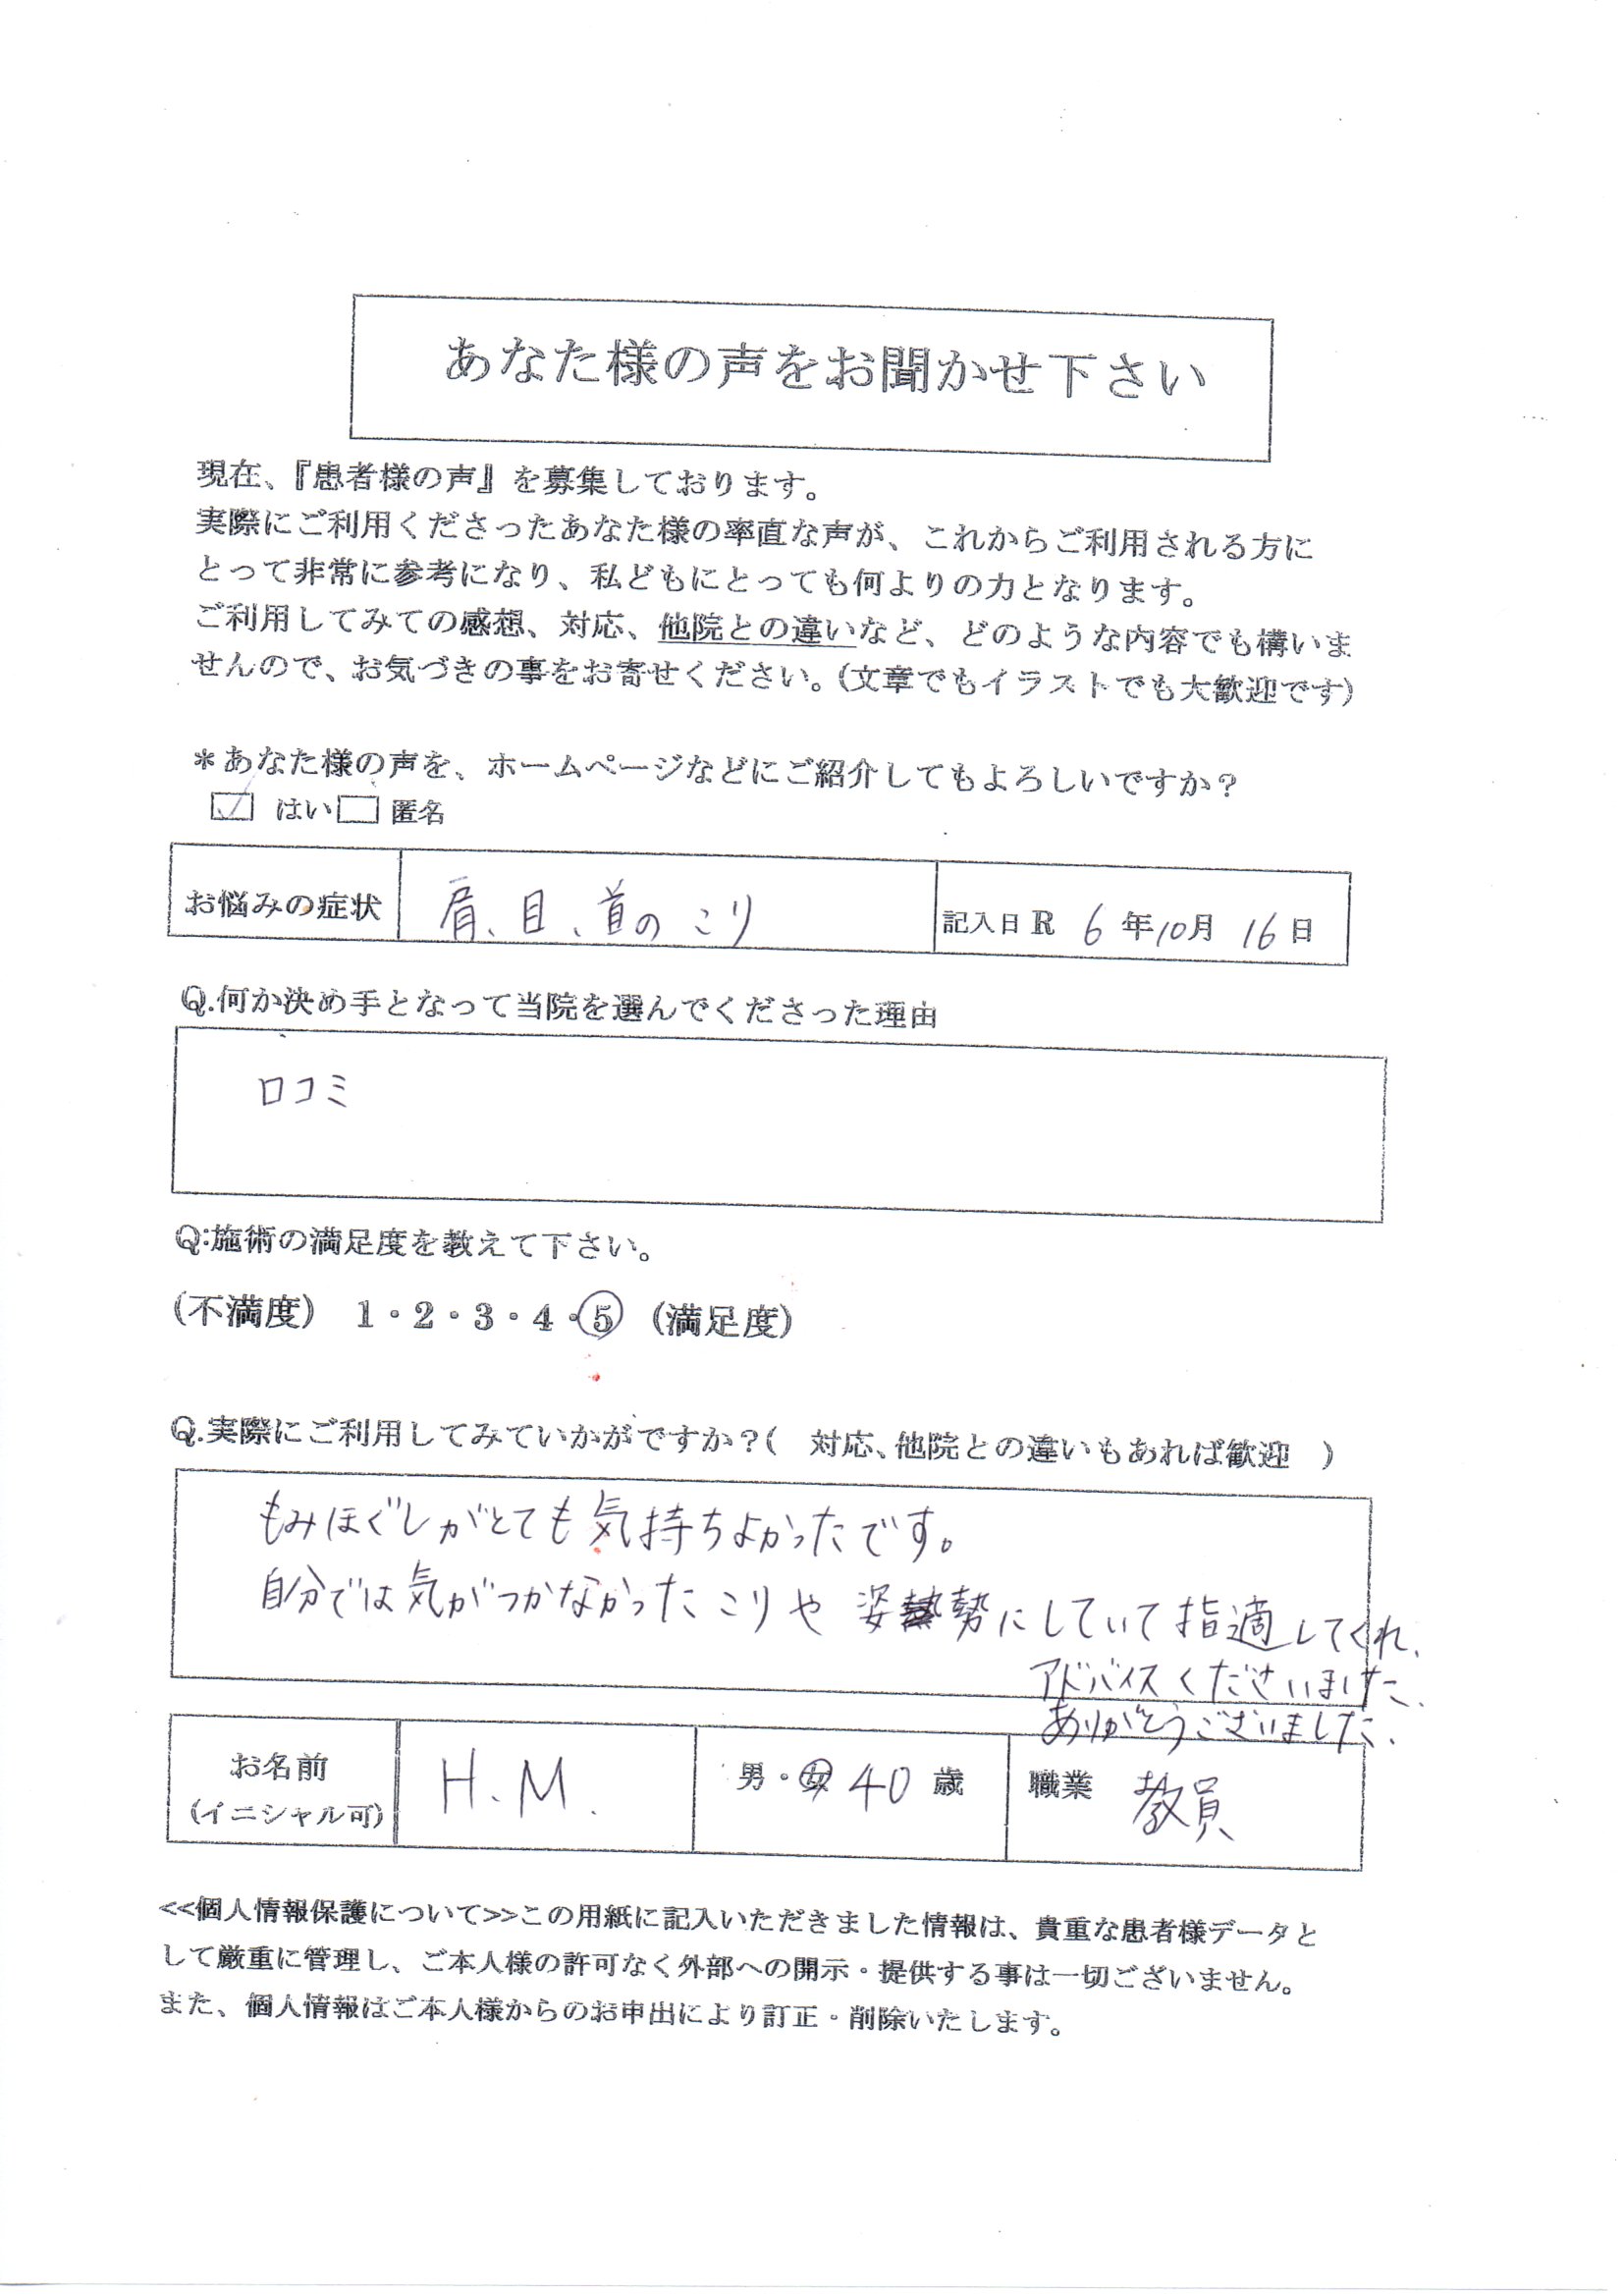 あなた様の声をお聞かせ下さい
現在、『患者様の声』を募集しております。
実際にご利用くださったあなた様の率直な声が、これからご利用される方に
とって非常に参考になり、私どもにとっても何よりの力となります。
ご利用してみての感想、対応、他院との違いなど、どのような内容でも構いま
せんので、お気づきの事をお寄せください。(文章でもイラストでも大歓迎です)
*あなた様の声を、ホームページなどにご紹介してもよろしいですか?
☑ はい □ 匿名
お悩みの症状 肩、目、首の こり 記入日 R 6 年 10 月 16 日
Q.何か決め手となって当院を選んでくださった理由
口コミ
Q:施術の満足度を教えて下さい。
(不満度) 1・2・3・4・5 (満足度)
Q.実際にご利用してみていかがですか?( 対応、他院との違いもあれば歓迎 )
もみほぐしがとても気持ちよかったです。
自分では気がつかなかったこりや 姿勢にしていて指適してくれ、
アドバイスくださいました、
ありがとうございました、
お名前 H.M. 男・女 40 歳 職業 教員
(イニシャル可)
<<個人情報保護について>>この用紙に記入いただきました情報は、貴重な患者様データと
して厳重に管理し、ご本人様の許可なく外部への開示・提供する事は一切ございません。
また、個人情報はご本人様からのお申出により訂正・削除いたします。